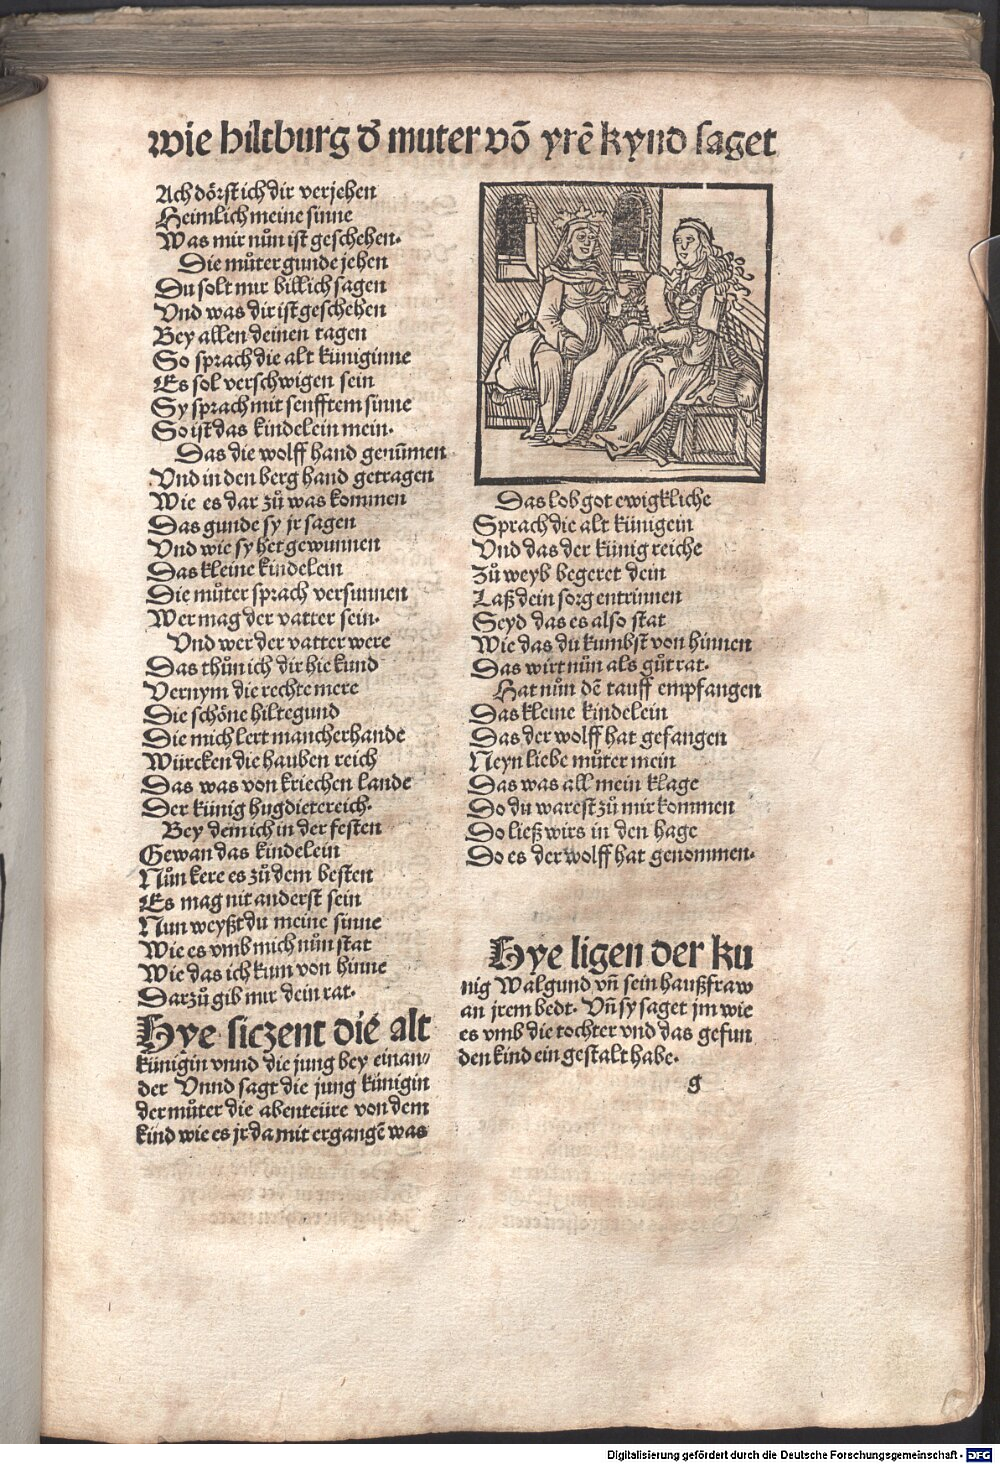 wie hiltburg d̕ muter vō yrē kynd saget
Ach dörst ich dir verjehen
Heimlich meine sinne
Was mir nůn ist geschehen.
Die můter gunde jehen
Du solt mir billich sagen
Vnd was dir ist geschehen
Bey allen deinen tagen
So sprach die alt küniginne
Es sol verschwigen sein
Sy sprach mit senfftem sinne
So ist das kindelein mein.
Das die wolff hand genūmen
Vnd in den berg hand getragen
Wie es dar zů was kommen
Das gunde sy jr sagen
Vnd wie sy het gewunnen
Das kleine kindelein
Die můter sprach versunnen
Wer mag der vatter sein.
Vnd wer der vatter were
Das thůn ich dir hie kund
Vernym die rechte mere
Die schöne hiltegund
Die mich lert mancherhande
Würcken die hauben reich
Das was von kriechen lande
Der künig hugdietereich.
Bey dem ich in der festen
Gewan das kindelein
Nůn kere es zů dem besten
Es mag nit anderst sein
Nun weyßt du meine sinne
Wie es vmb mich nůn stat
Wie das ich kum von hinne
Darzů gib mir dein rat.
Hye siczent die alt
künigin vnnd die jung bey einan⸗
der Vnnd sagt die jung künigin
der můter die abenteüre von dem
kind wie es jr da mit ergangē was
Das lob got ewigkliche
Sprach die alt künigein
Vnd das der künig reiche
Zů weyb begeret dein
Laß dein sorg entrinnen
Seyd das es also stat
Wie das du kumbst von hinnen
Das wirt nůn als gůt rat.
Hat nůn dē tauff empfangen
Das kleine kindelein
Das der wolff hat gefangen
Neyn liebe můter mein
Das was all mein klage
Do du warest zů mir kommen
Do ließ wirs in den hage
Do es der wolff hat genommen.
Hye ligen der ku
nig Walgund vñ sein haußfraw
an jrem bedt. Vñ sy saget jm wie
es vmb die tochter vnd das gefun
den kind ein gestalt habe.
g
Digitalisierung gefördert durch die Deutsche Forschungsgemeinschaft - DFG